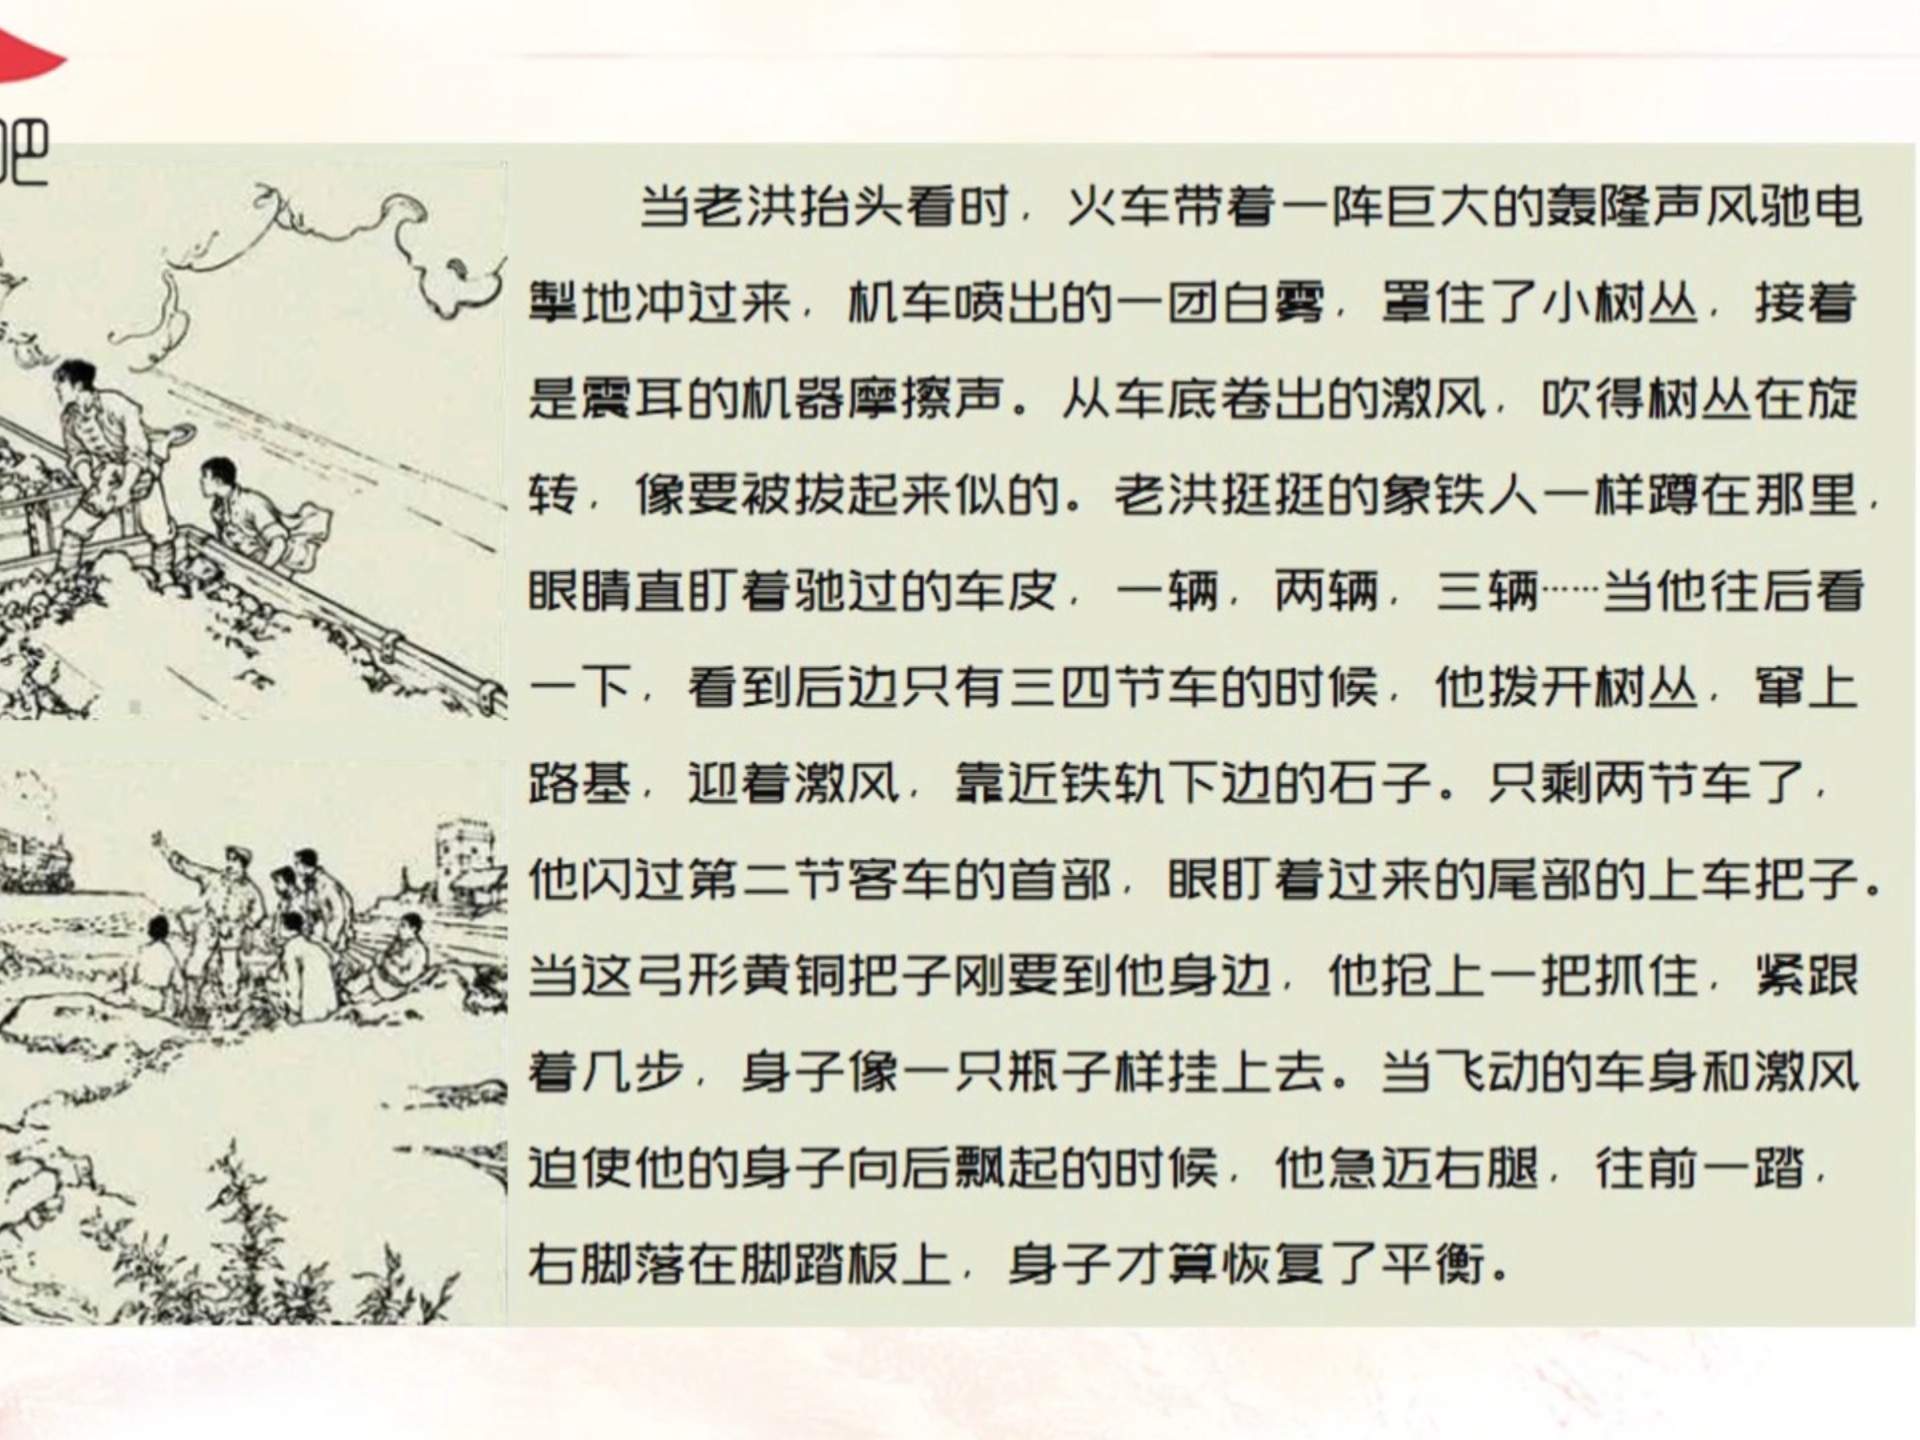 吧
当老洪抬头看时，火车带着一阵巨大的轰隆声风驰电
掣地冲过来，机车喷出的一团白雾，罩住了小树丛，接着
是震耳的机器摩擦声。从车底卷出的激风，吹得树丛在旋
转，像要被拔起来似的。老洪挺挺的象铁人一样蹲在那里，
眼睛直盯着驰过的车皮，一辆，两辆，三辆……当他往后看
一下，看到后边只有三四节车的时候，他拨开树丛，窜上
路基，迎着激风，靠近铁轨下边的石子。只剩两节车了，
他闪过第二节客车的首部，眼盯着过来的尾部的上车把子。
当这弓形黄铜把子刚要到他身边，他抢上一把抓住，紧跟
着几步，身子像一只瓶子样挂上去。当飞动的车身和激风
迫使他的身子向后飘起的时候，他急迈右腿，往前一踏，
右脚落在脚踏板上，身子才算恢复了平衡。